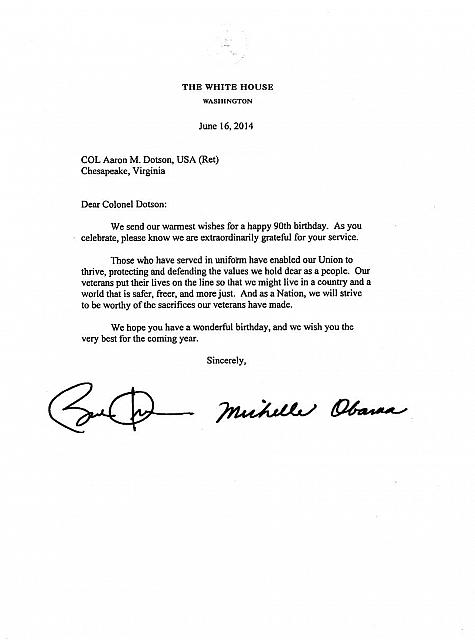 THE WHITE HOUSE
WASHINGTON
June 16, 2014
COL Aaron M. Dotson, USA (Ret)
Chesapeake, Virginia
Dear Colonel Dotson:
We send our warmest wishes for a happy 90th birthday. As you
celebrate, please know we are extraordinarily grateful for your service.
Those who have served in uniform have enabled our Union to
thrive, protecting and defending the values we hold dear as a people. Our
veterans put their lives on the line so that we might live in a country and a
world that is safer, freer, and more just. And as a Nation, we will strive
to be worthy of the sacrifices our veterans have made.
We hope you have a wonderful birthday, and we wish you the
very best for the coming year.
Sincerely,
Michelle Obama